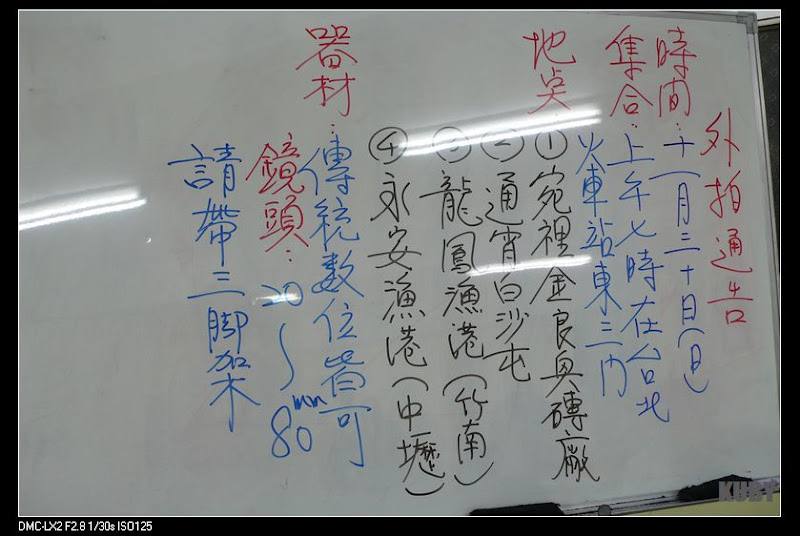 外拍通告
時間：十一月三十日(日)
集合：上午七時在台北
火車站東三門
地点：①宛裡金良興磚廠
②通宵白沙屯
③龍鳳漁港(竹南)
④永安漁港(中壢)
器材：傳統數位皆可
鏡頭：20～80mm
請帶三脚架
KUBY
DMC-LX2 F2.8 1/30s ISO125